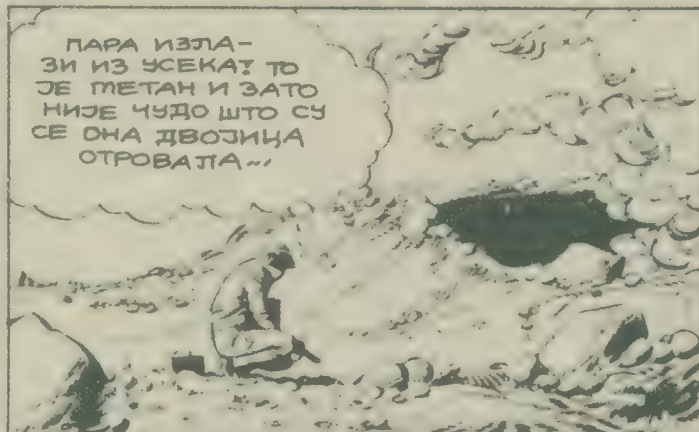 ПАРА ИЗЛА-
ЗИ ИЗ УСЕКА! ТО
ЈЕ МЕТАН И ЗАТО
НИЈЕ ЧУДО ШТО СУ
СЕ ОНА ДВОЈИЦА
ОТРОВАЛА...